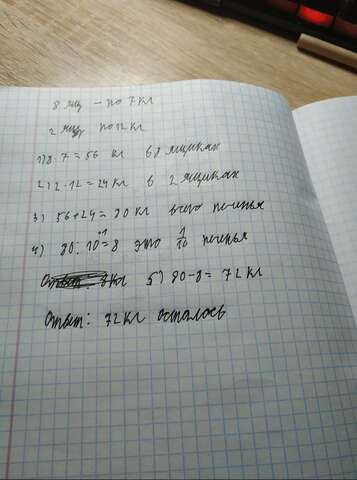 8 ящ – по 7 кг
2 ящ по 12 кг
1) 8·7=56 кг в 8 ящиках
2) 2·12=24 кг в 2 ящиках
3) 56+24=80 кг всего печенья
4) 80:10=8 это 1/10 печенья
Ответ: 8 кг 5) 80-8=72 кг
Ответ: 72 кг осталось